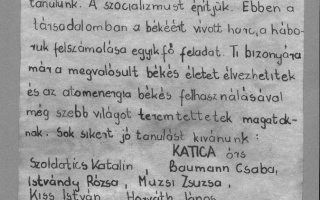 tanulunk. A szocializmust építjük. Ebben a
társadalomban a békéért vívott harc, a hábo-
ruk felszámolása egyik fő feladat. Ti bizonyára
már a megvalósult békés életet élvezhetitek
és az atomenergia békés felhasználásával
még szebb világot teremtettetek magatok-
nak. Sok sikert jó tanulást kívánunk:
KATICA őrs
Szoldatics Katalin, Baumann Csaba,
Istvándy Rózsa, Muzsi Zsuzsa,
Kiss István, Horváth János